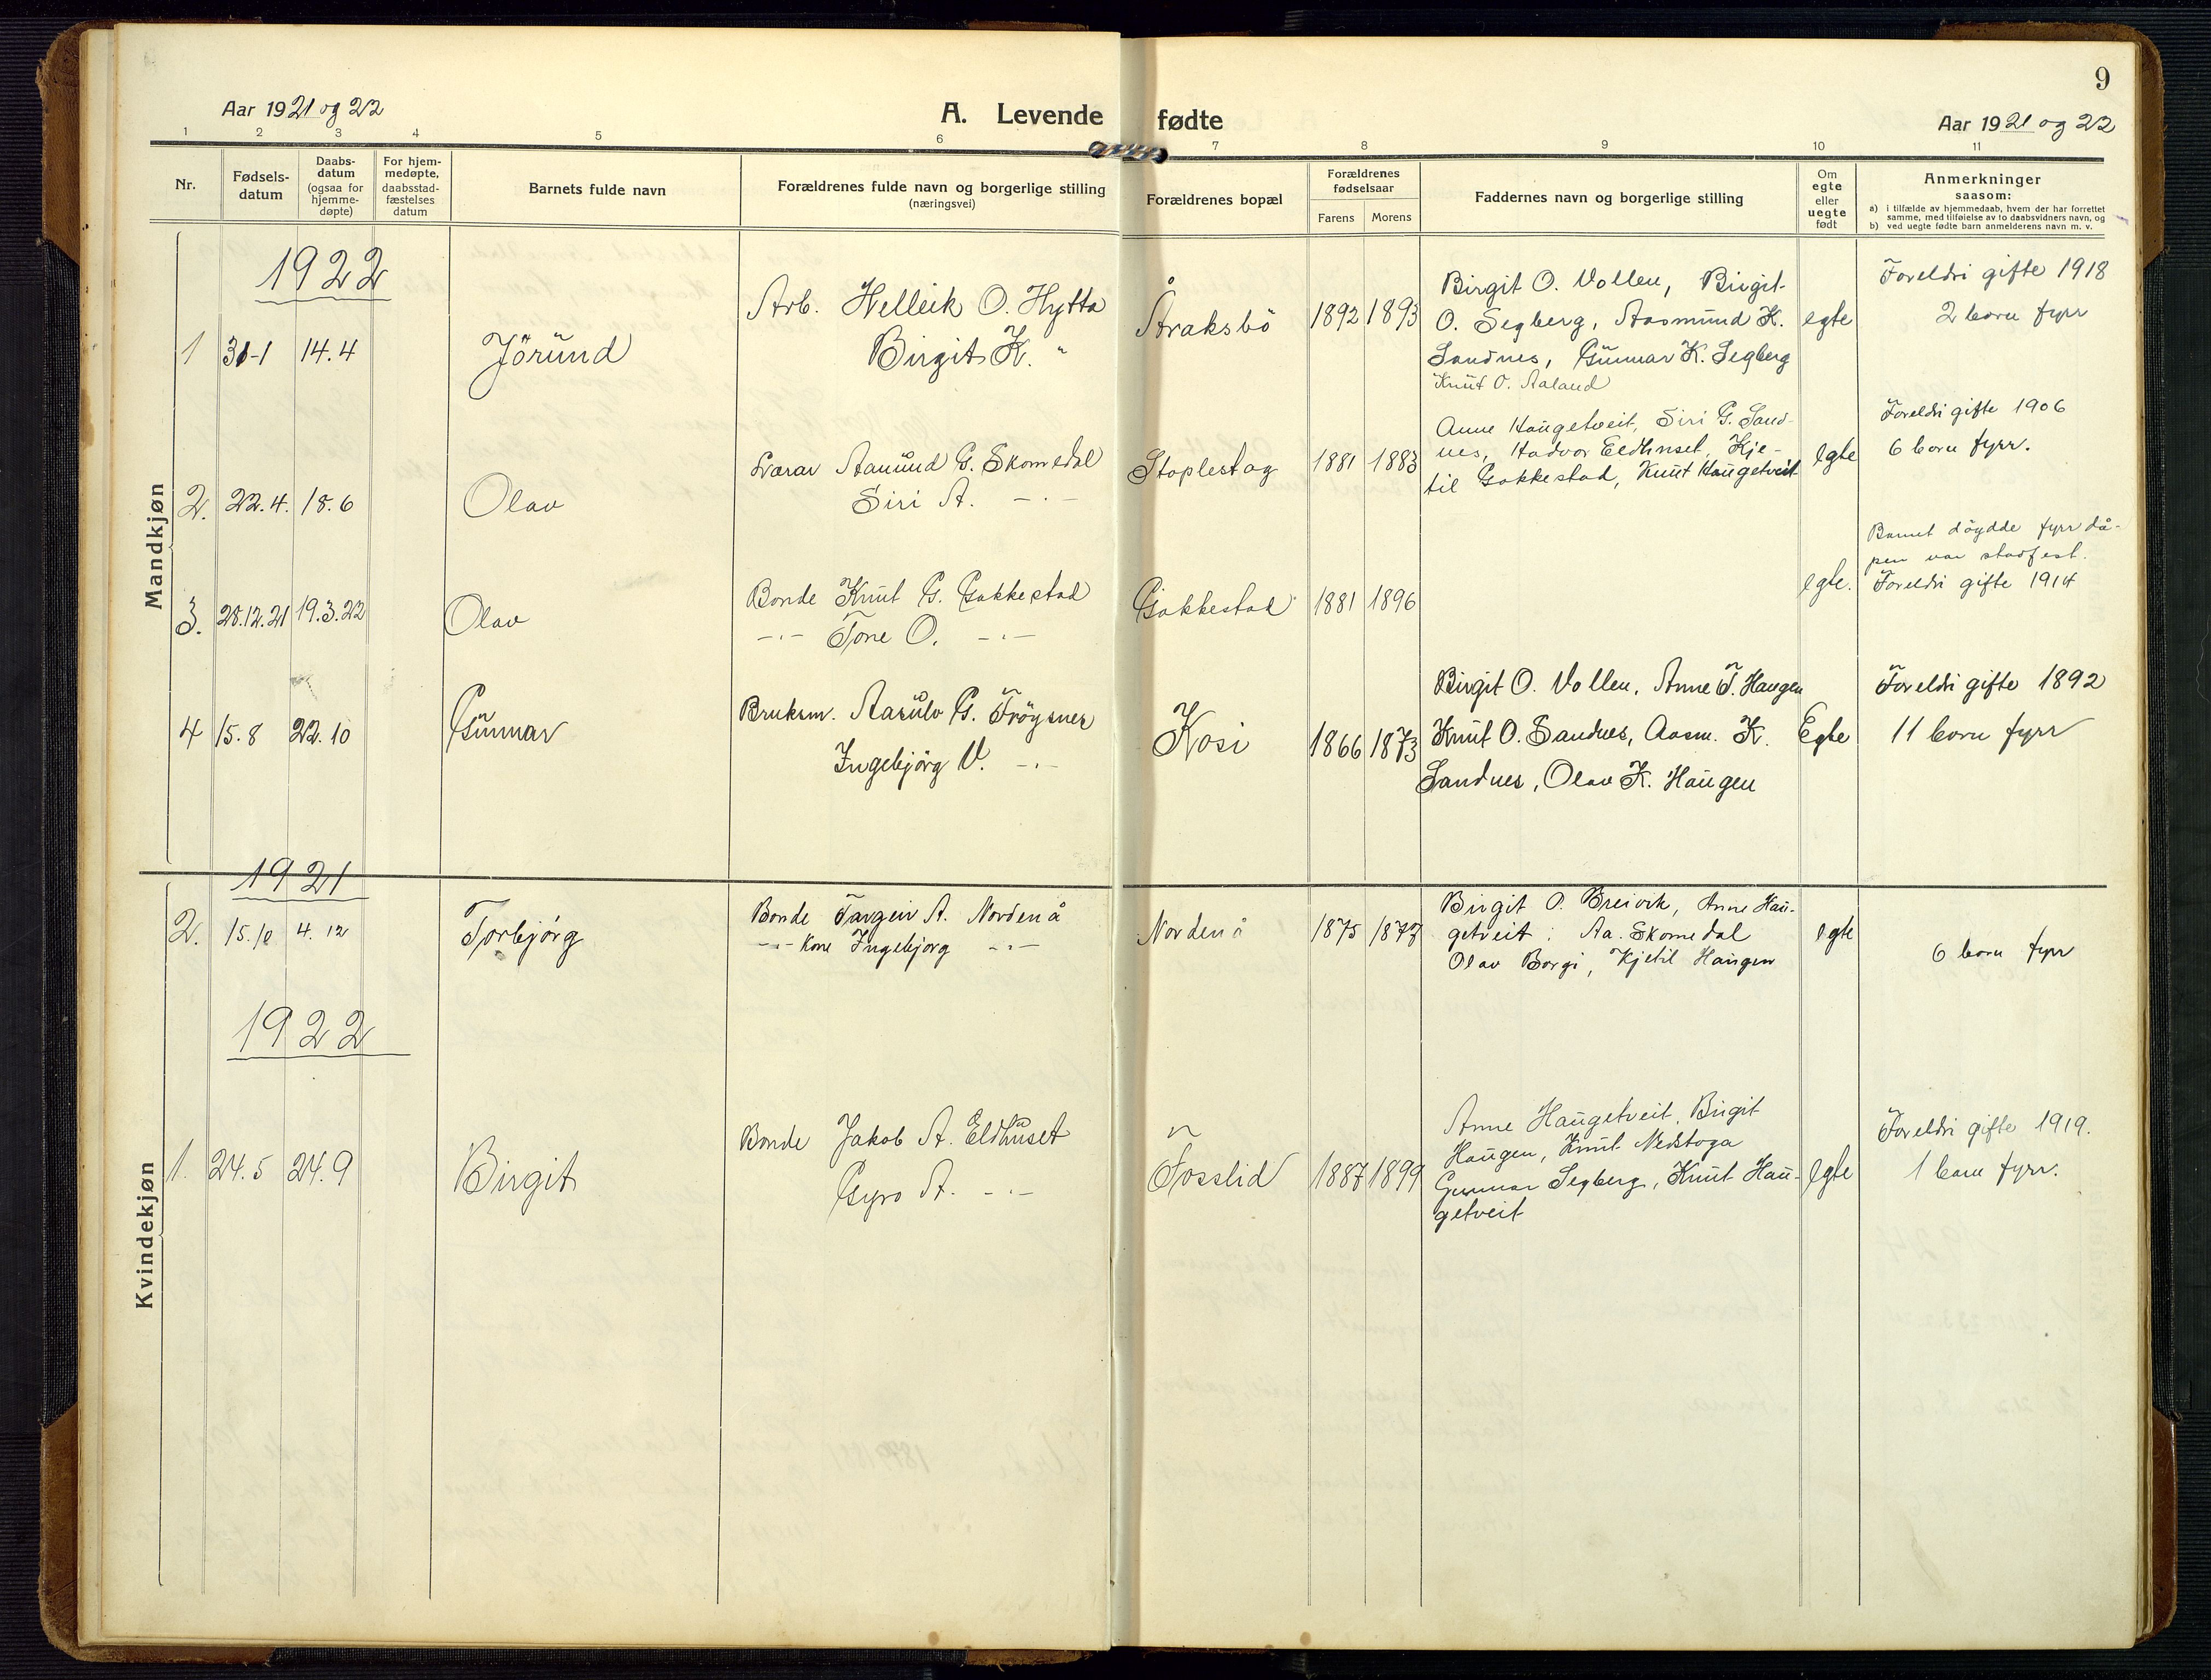 9
Aar 1921 og 22
A. Levende fødte
Aar 1921 og 22
1 2 3 4 5 6 7 8 9 10 11
Nr.
Fødsels-
datum
Daabs-
datum
(ogsaa for
hjemme-
døpte)
For hjem-
medøpte,
daabsstad-
fæstelses
datum
Barnets fulde navn
Forældrenes fulde navn og borgerlige stilling
(næringsvei)
Forældrenes bopæl
Forældrenes
fødselsaar
Farens Morens
Faddernes navn og borgerlige stilling
Om
egte
eller
uegte
født
Anmerkninger
saasom:
a) i tilfælde av hjemmedaab, hvem der har forrettet
samme, med tilføielse av to daabsvidners navn, og
b) ved uegte fødte barn anmelderens navn m. v.
Mandkjøn
1922
1 31-1 14.4 Jörund
Arb. Helleik O. Hytta
Birgit K. "
Åraksbö 1892 1893
Birgit O. Vollen, Birgit
O. Segberg, Aasmund K.
Sandnes, Gunnar K. Segberg
Knut O. Aaland
egte
Foreldri gifte 1918
2 born fyrr
2. 22.4. 18.6 Olav
Lærar Aamund G. Skomedal
Siri A. -"-
Stoplestog 1881 1883
Anne Haugetveit, Siri G. Sand-
nes, Hadvor Eldhuset, Kje-
til Gakkestad, Knut Haugetveit
egte
Foreldri gifte 1906
6 born fyrr.
3. 28.12.21 19.3.22 Olav
Bonde Knut G. Gakkestad
-"- Tone O. -"-
Gakkestad 1881 1896
egte.
Barnet döydde fyrr då-
pen var stadfest.
Foreldri gifte 1914
4 15.8 22.10 Gunnar
Bruksm. Aasulv G. Fröysnes
Ingebjörg V. -"-
Kosi 1866 1873
Birgit O. Vollen, Anne T. Haugen
Knut O. Sandnes, Aasm. K.
Sandnes, Olav K. Haugen
Egte
Foreldri gifte 1892
11 born fyrr
Kvindekjøn
1921
2. 15.10 4.12 Torbjörg
Bonde Targeir A. Nordenå
-"- Kone Ingebjorg -"-
Nordenå 1875 1877
Birgit O. Breivik, Anne Hau-
getveit: Aa. Skomedal
Olav Borgi, Kjetil Haugen
egte
6 born fyrr
1922
1. 24.5 24.9 Birgit
Bonde Jakob A. Eldhuset
Gyro A. -"-
Fosslid 1887 1899
Anne Haugetveit, Birgit
Haugen, Knut Nedstoga
Gunnar Segberg, Knut Hau-
getveit
egte
Foreldri gifte 1919.
1 barn fyrr.